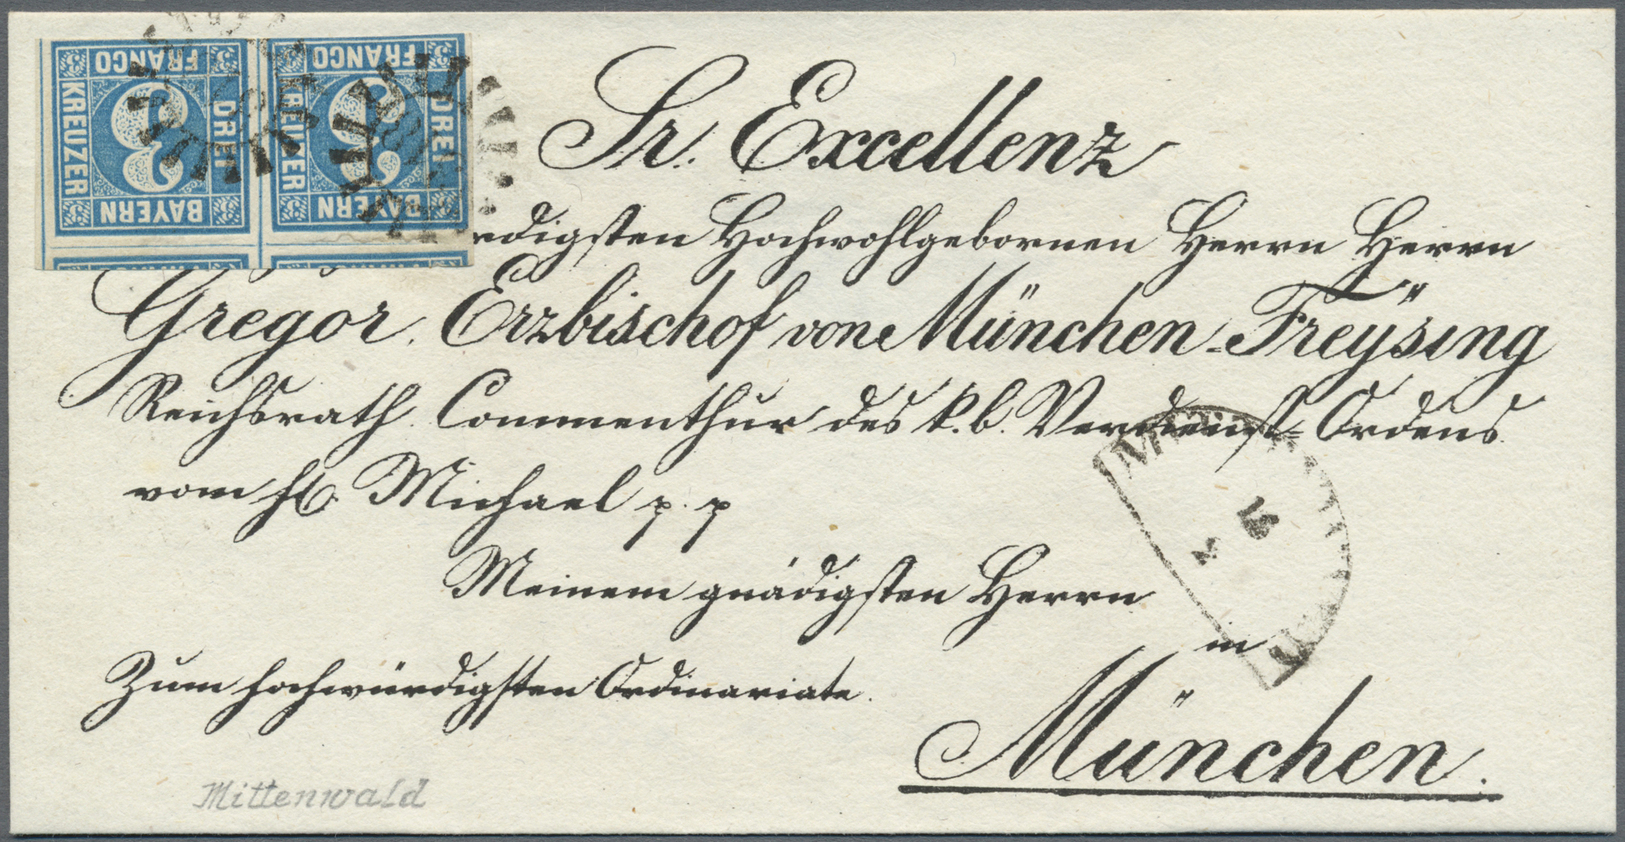 FRANCO FRANCO
KREUZER DREI KREUZER DREI
3 3
BAYERN BAYERN
Sr. Excellenz
rdigsten Hochwohlgebornen Herrn Herrn
Gregor, Erzbischof von München-Freysing
Reichsrath. Commenthur des k. b. Verdienst-Ordens
vom hl. Michael p. p
Meinem gnädigsten Herrn
in
Zum hochwürdigsten Ordinariate.
München.
Mittenwald